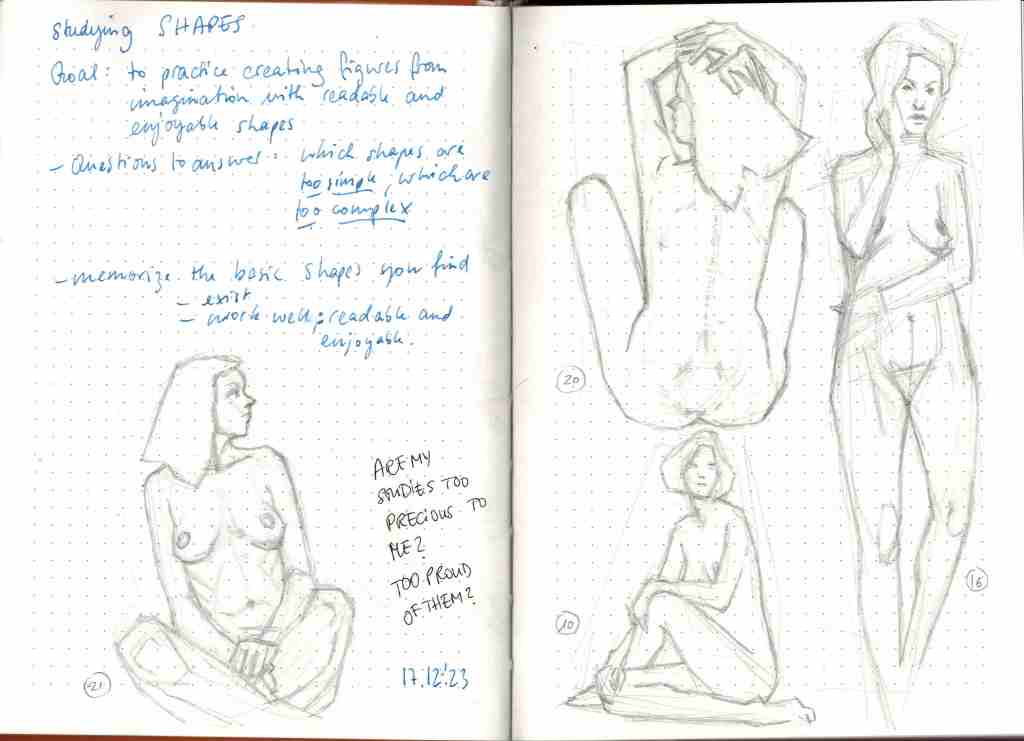 studying SHAPES
Goal: to practice creating figures from
imagination with readable and
enjoyable shapes
- Questions to answer: which shapes are
too simple, which are
too complex
- memorize the basic shapes you find
- exist
- work well: readable and
enjoyable.
ARE MY
STUDIES TOO
PRECIOUS TO
ME?
TOO PROUD
OF THEM?
17.12.'23
21
20
10
16